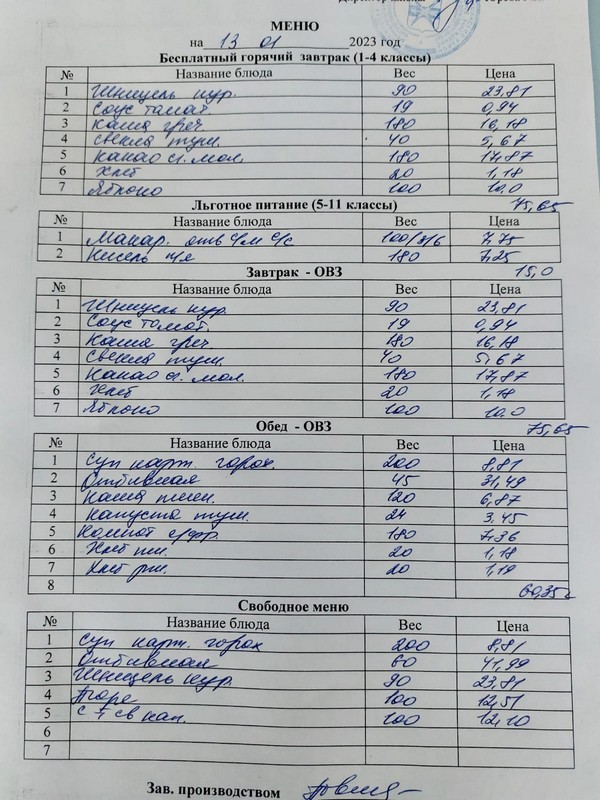 МЕНЮ
на 13 01 2023 год
Бесплатный горячий завтрак (1-4 классы)
№ Название блюда Вес Цена
1 Шницель кур. 90 23,81
2 Соус томат. 19 0,94
3 Каша греч. 180 16,18
4 Свекла туш. 40 5,67
5 Какао сг. мол. 180 17,87
6 Хлеб 20 1,18
7 Яблоко 100 10,0
Льготное питание (5-11 классы) 75,65
№ Название блюда Вес Цена
1 Макар. отв с/м с/с 100/3/6 7,75
2 Кисель п/я 180 7,25
Завтрак - ОВЗ 15,0
№ Название блюда Вес Цена
1 Шницель кур. 90 23,81
2 Соус томат. 19 0,94
3 Каша греч. 180 16,18
4 Свекла туш. 40 5,67
5 Какао сг. мол. 180 17,87
6 Хлеб 20 1,18
7 Яблоко 100 10,0
Обед - ОВЗ 75,65
№ Название блюда Вес Цена
1 Суп карт. горох. 200 8,81
2 Отбивная 45 31,49
3 Каша пшен. 120 6,87
4 Капуста туш. 24 3,45
5 Компот с/фр. 180 7,36
6 Хлеб пш. 20 1,18
7 Хлеб рж. 20 1,19
8 60,35
Свободное меню
№ Название блюда Вес Цена
1 Суп карт. горох 200 8,81
2 Отбивная 60 41,99
3 Шницель кур. 90 23,81
4 Пюре 100 12,51
5 С-т св кап. 100 12,10
6
7
Зав. производством